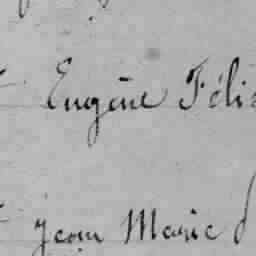 Eugène Féli
Jean Marie